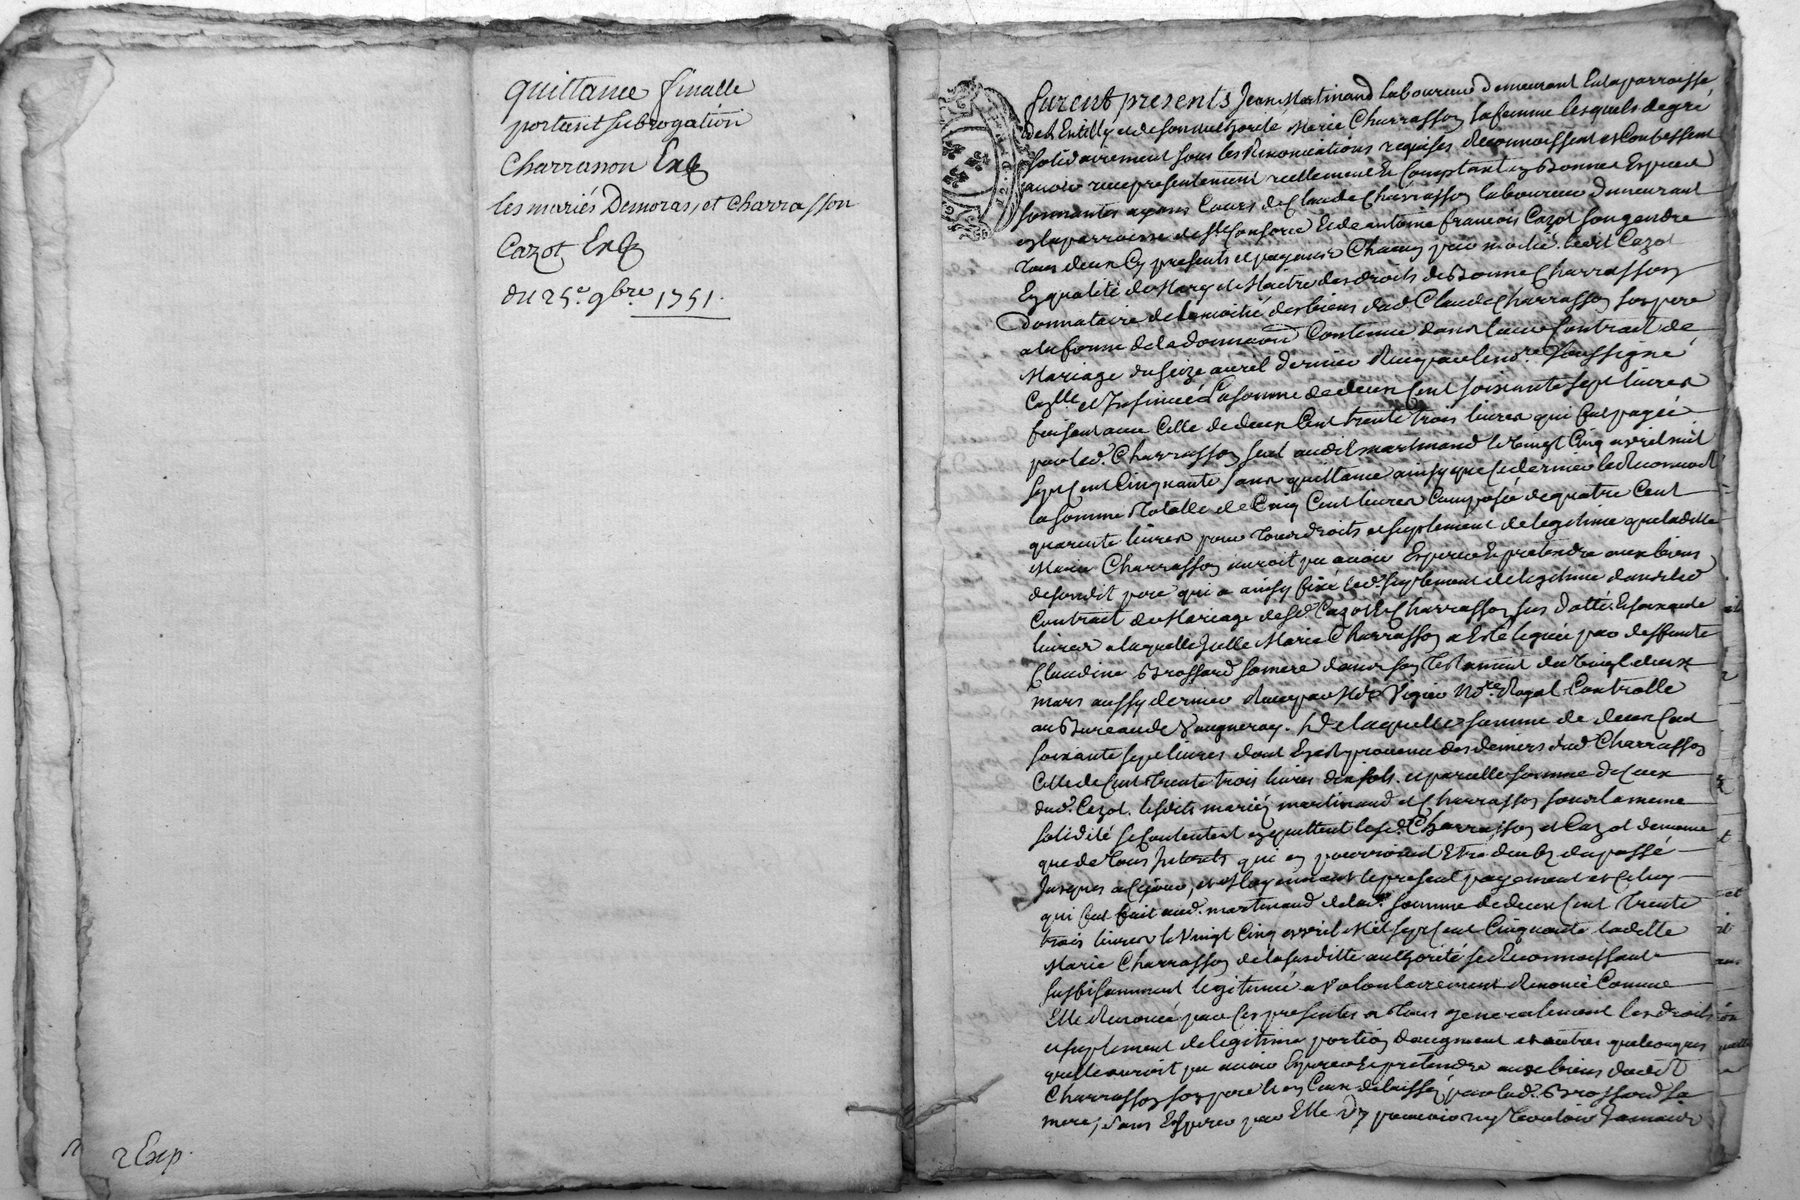 quittance finalle
portant subrogation
Charrasson Exp
les mariés Demoras, et Charrasson
Cazot Exp
du 25e. 9bre 1751.
2 Exp.
furent presents Jean Martinand laboureur demeurant en la parroisse
et de son authorité Marie Charrasson sa femme lesquels de gré
solidairement sous les renonciations requises reconnoissent et confessent
avoir reçu presentement reellement et comptant en bonnes especes
sonnantes ayans cours de Claude Charrasson laboureur demeurant
en la parroisse de St Consorce et de antoine francois Cazot son gendre
tous deux cy presents et payeurs chacun par moitié. ledit Cazot
en qualité de Mary et Maitre des droits de Bonne Charrasson
donnataire de la moitié des biens dud. Claude Charrasson son pere
a la forme de la donnation contenue dans leur contrait de
Mariage du seize avril dernier reçu par le nore. soussigné
et la somme de deux cent soixante sept livres
faisant avec celle de deux cent trente trois livres qui fut payée
par led. Charrasson seul audit martinand le vingt cinq avril mil
sept cent cinquante sans quittance ainsy que ce dernier le reconnoit
la somme totalle de cinq cent livres composée de quatre cent
quarente livres pour tous droits et suplement de legitime que ladite
Marie Charrasson auroit pu avoir esperer et pretendre aux biens
de sondit pere qui a ainsy fixé led. suplement de legitime dans led
contrait de Mariage desd. Cazot et Charrasson sus datté. et soixante
livres a laquelle icelle Marie Charrasson a esté leguée par deffunte
Claudine Brossard sa mere dans son testament du vingt deux
mars aussy dernier reçu par Me Vigier Nore. Royal Controllé
au Bureau de Vaugneray. de laquelle somme de deux cent
soixante sept livres dont en est provenu des deniers dud. Charrasson
celle de cent trente trois livres dix sols. et pareille somme de ceux
dud. Cazot. lesdits mariés martinand et Charrasson sous la meme
solidité se contentent en quittent lesd. Charrasson et Cazot de meme
que de tous interets qui en pourroient etre deubs du passé
jusques a ce jour, et moyennant le present payement et celuy
qui fut fait aud. martinand de lad. somme de deux cent trente
trois livres le vingt cinq avril mil sept cent cinquante ladite
Marie Charrasson de la susditte authorité se reconnoissant
suffisamment légitimée a volontairement renoncé comme
Elle renonce par ces presentes a tous generalement les droits
et suplement de legitime portion d'augment et autres quelconques
quelle auroit pu avoir esperer et pretendre aux biens dudit
Charrasson son pere et en ceux delaissés par lad. Brossard sa
mere, sans esperer par Elle d'y pouvoir ny vouloir jamais